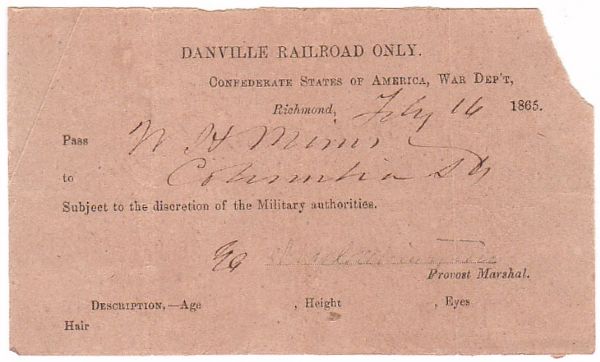 DANVILLE RAILROAD ONLY.
CONFEDERATE STATES OF AMERICA, WAR DEP'T,
Richmond, Feby 16 1865.
Pass W H Mims
to Columbia
Subject to the discretion of the Military authorities.
Provost Marshal.
DESCRIPTION,—Age , Height , Eyes
Hair